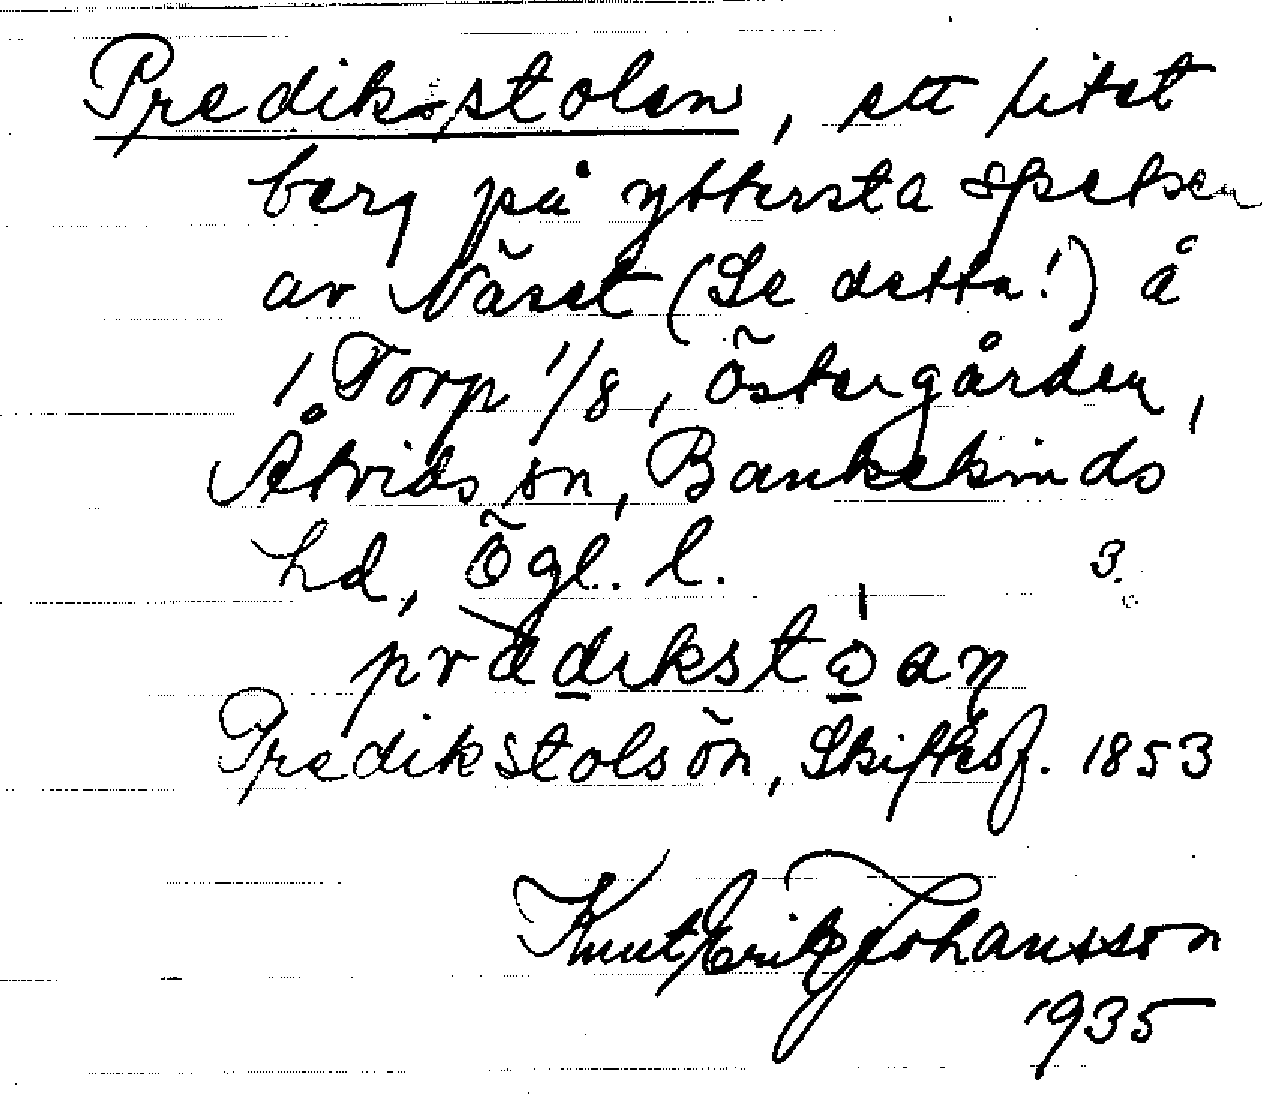 Predikstolen, ett litet
berg på yttersta spetsen
av Näset (Se detta!) å
1 Torp 1/8, Östergården,
Åtvids sn, Bankekinds
hd, Ögl. l. 3.
Predikstolsön, Skifteshf. 1853
Knut Erik Johansson
1935